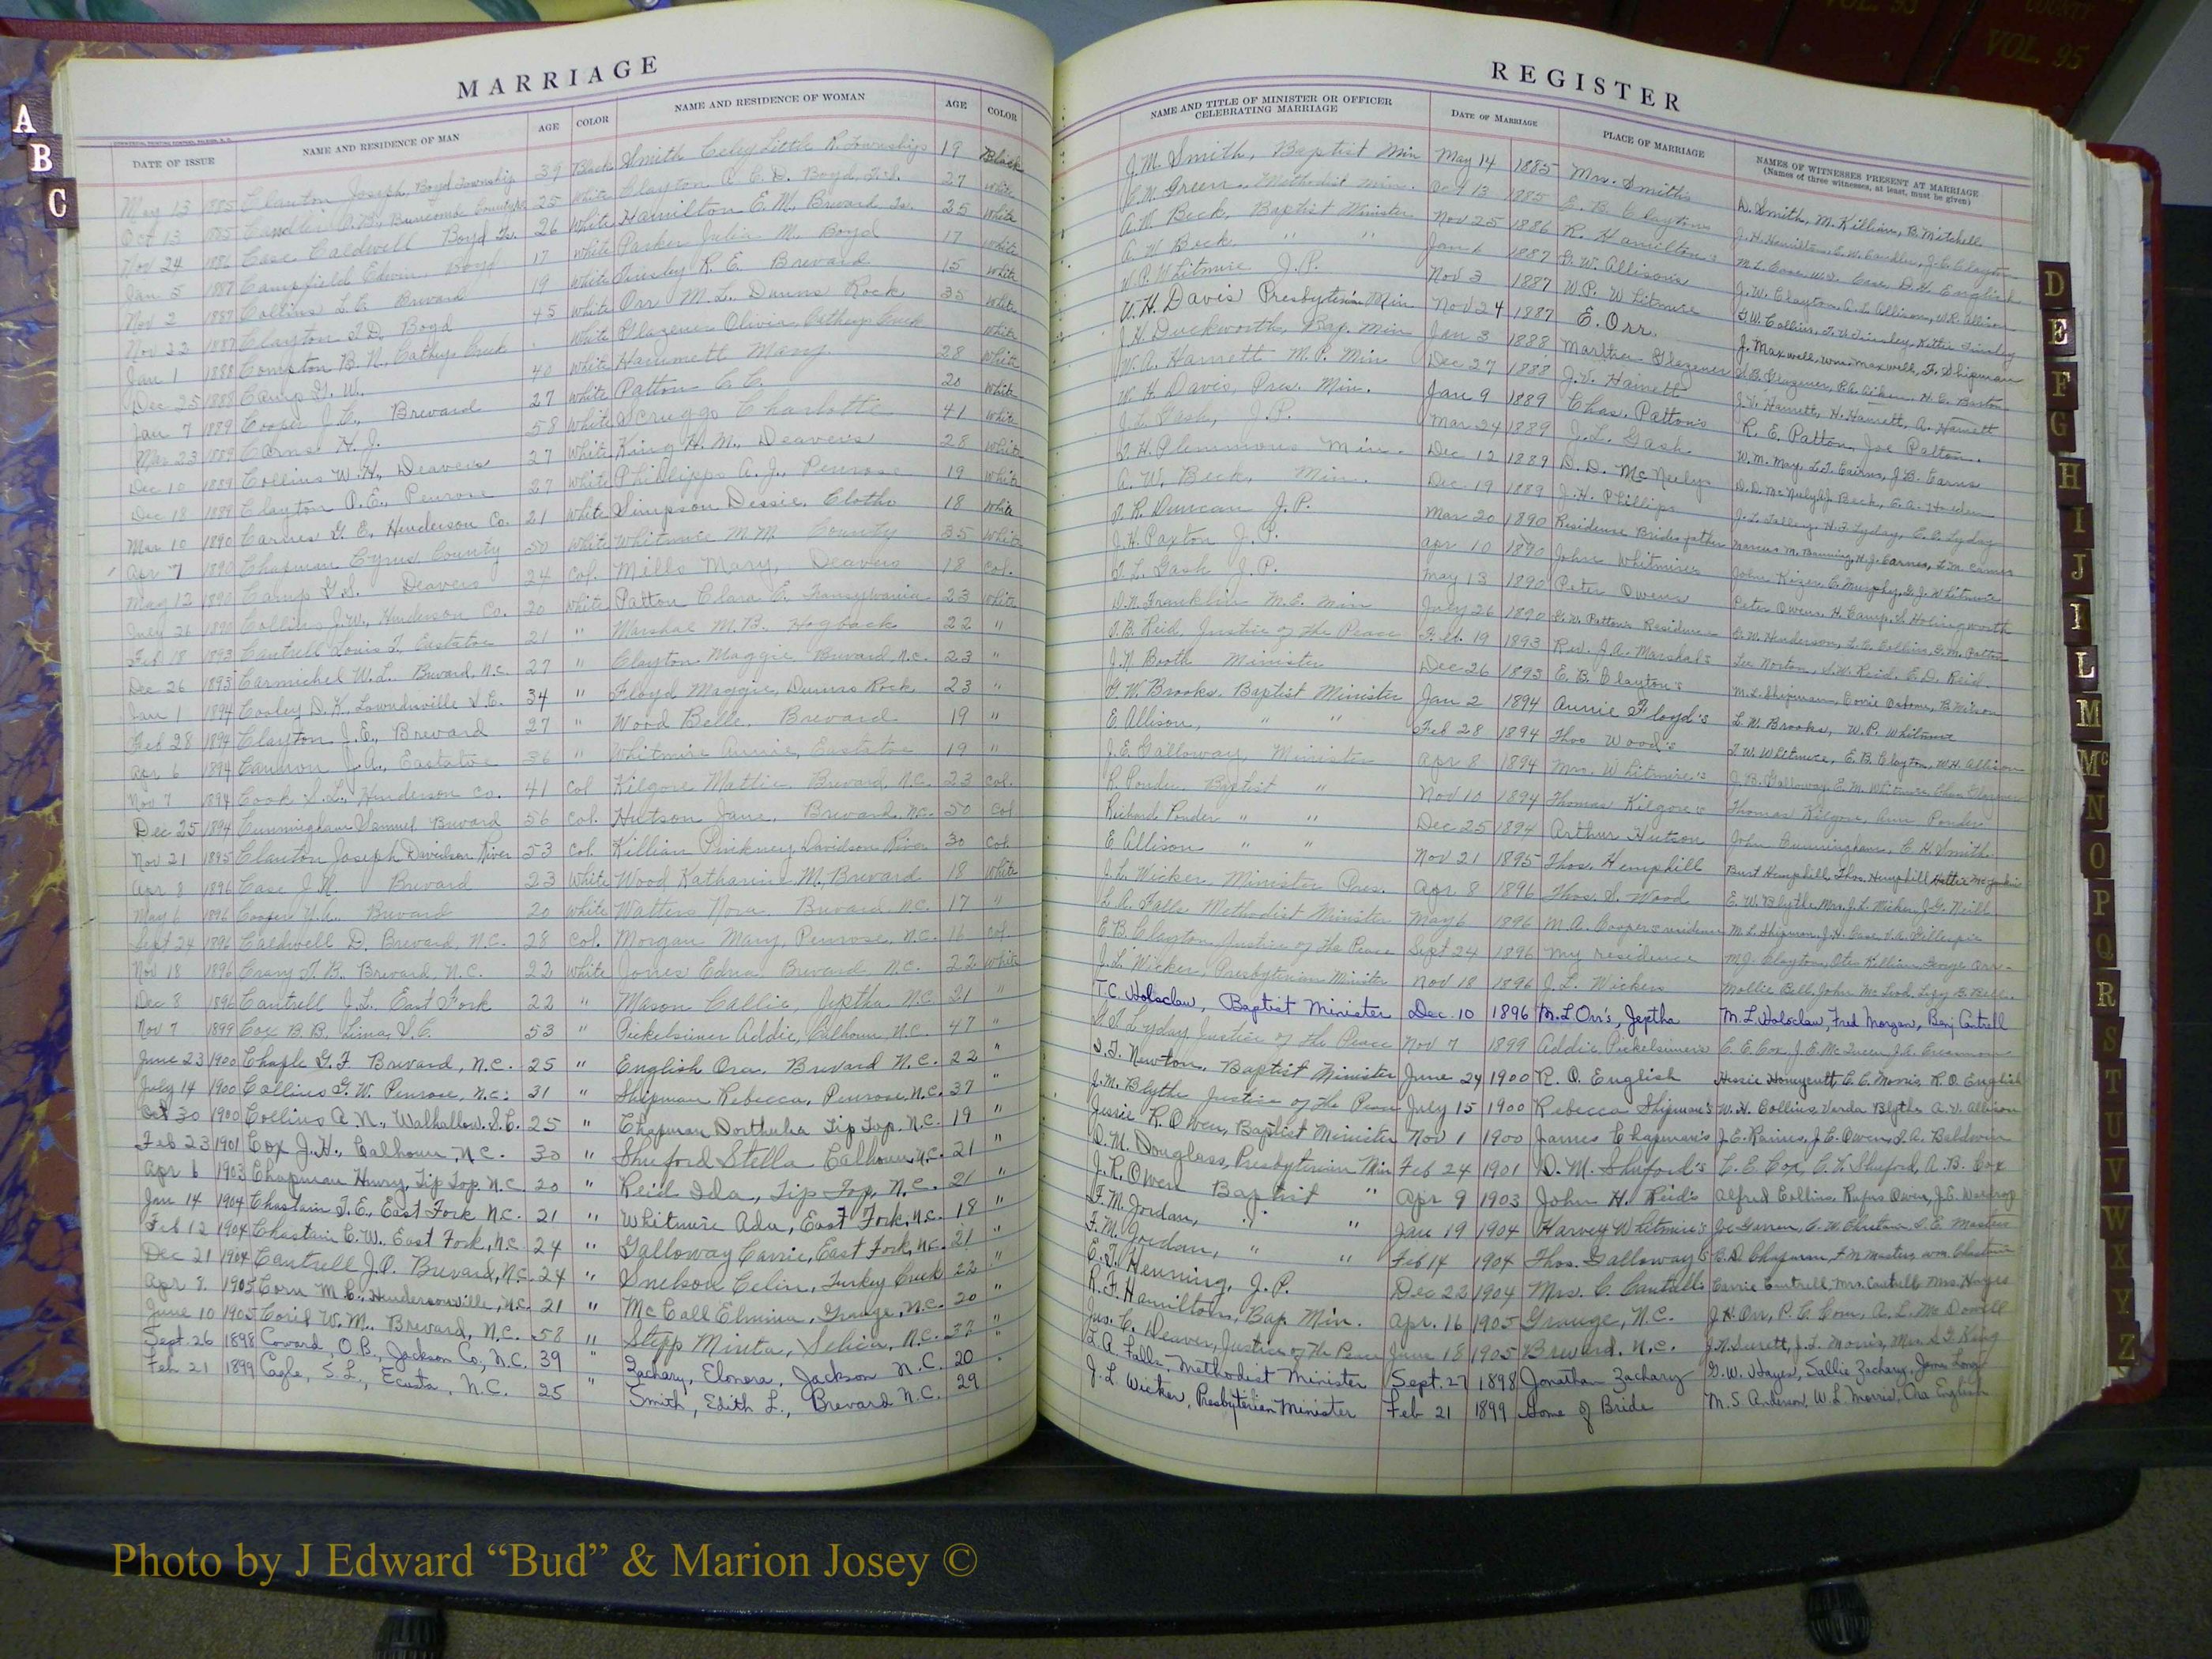 MARRIAGE
REGISTER
DATE OF ISSUE
NAME AND RESIDENCE OF MAN
AGE
COLOR
NAME AND RESIDENCE OF WOMAN
AGE
COLOR
NAME AND TITLE OF MINISTER OR OFFICER CELEBRATING MARRIAGE
DATE OF MARRIAGE
PLACE OF MARRIAGE
NAMES OF WITNESSES PRESENT AT MARRIAGE
(Names of three witnesses, at least, must be given)
May 13 1885 Clayton Joseph, Boyd Township 39 Black Smith Celey Little R. Township 19 Black
Oct 13 1885 Candler A.B., Buncombe County 25 White Clayton A. C. D. Boyd 27 White
Nov 24 1886 Case Caldwell Boyd Ts. 26 White Hamilton E. M., Brevard Ts. 25 White
Jan 5 1887 Campfield Edwin Boyd 17 White Parker Julia M. Boyd 17 White
Nov 2 1887 Collins L.E. Brevard 19 White Tinsley R. E. Brevard 15 White
Nov 22 1887 Clayton T.D. Boyd 45 White Orr M. L. Dunns Rock 35 White
Jan 1 1888 Compton B. N., Catheys Creek White Glazener Olivia, Catheys Creek White
Dec 25 1888 Camp G. W. 40 White Hammett Mary 28 White
Jan 7 1889 Cooper J. E., Brevard 27 White Patton C. C. 20 White
Mar 23 1889 Carns H. J. 58 White Scruggs Charlotte 41 White
Dec 10 1889 Collins W. H., Deavers 27 White King H. M., Deavers 28 White
Dec 18 1889 Clayton P. E., Penrose 27 White Phillipps A. J., Penrose 19 White
Mar 10 1890 Carnes G. E., Henderson Co. 21 White Simpson Dessie, Clotho 18 White
Apr 7 1890 Chapman Cyrus, County 50 White Whitmire M. M. County 35 White
May 12 1890 Camp G.S. Deavers 24 Col. Mills Mary, Deavers 18 Col.
July 26 1890 Collins J.W., Henderson Co. 20 White Patton Clara E. Transylvania 23 White
Feb 18 1893 Cantrell Louis T. Eastatoe 21 " Marshal M.B. Hogback 22 "
Dec 26 1893 Carmichel W.L. Brevard, N.C. 27 " Clayton Maggie Brevard, N.C. 23 "
Jan 1 1894 Cooley D. K., Lowndsville S.C. 34 " Floyd Maggie, Dunns Rock 23 "
Feb 28 1894 Clayton J. E., Brevard 27 " Wood Belle, Brevard 19 "
Apr 6 1894 Cannon J.A., Eastatoe 36 " Whitmire Annie, Eastatoe 19 "
Nov 7 1894 Cook S. L., Henderson Co. 41 Col Kilgore Mattie Brevard N.C. 23 Col.
Dec 25 1894 Cunningham Samuel Brevard 56 Col. Hutson Jane, Brevard, N.C. 50 Col
Nov 21 1895 Clayton Joseph Davidson River 53 Col. Killian Pinkney, Davidson River 30 Col.
Apr 8 1896 Case J. N. Brevard 23 White Wood Katharine M., Brevard 18 White
May 6 1896 Cooper Brevard 20 White Watters Nora Brevard N.C. 17 "
Sept 24 1896 Caldwell D. Brevard, N.C. 28 Col. Morgan Mary, Penrose, N.C. 16 Col.
Nov 18 1896 Crary T. B., Brevard, N.C. 22 White Jones Edna Brevard N.C. 22 White
Dec 8 1896 Cantrell J. L. East Fork 22 " Mason Callie, Jeptha N.C. 21 "
Nov 7 1899 Cox B. B. Lima, S.C. 53 " Pickelsimer Addie, Calhoun, N.C. 47 "
June 23 1900 Chapple G. F. Brevard, N.C. 25 " English Ora Brevard N.C. 22 "
July 14 1900 Collins G. W. Penrose, N.C. 31 " Shipman Rebecca, Penrose, N.C. 37 "
Oct 30 1900 Collins A. N., Walhallow, S.C. 25 " Chapman Dorthulia Tip Top, N.C. 19 "
Feb 23 1901 Cox J. H., Calhoun N.C. 30 " Shuford Stella Calhoun, N.C. 21 "
Apr 6 1903 Chapman Henry, Tip Top, N.C. 20 " Reid Ida, Tip Top, N.C. 21 "
Jan 14 1904 Chastain T. E., East Fork N.C. 21 " Whitmire Ada, East Fork, N.C. 18 "
Feb 12 1904 Chastain C. W. East Fork, N.C. 24 " Galloway Carrie, East Fork, N.C. 21 "
Dec 21 1904 Cantrell J. P. Brevard, N.C. 24 " Snelson Celia, Turkey Creek 22 "
Apr 8, 1905 Corn M. C., Hendersonville, N.C. 21 " McCall Elmina, Grange, N.C. 20 "
June 10 1905 W. M. Brevard, N.C. 58 " Stepp Minta, Selica, N.C. 37 "
Sept. 26 1898 Coward, O.B., Jackson Co, N.C. 39 " Zachary, Elonora, Jackson N.C. 20
Feb. 21 1899 Cagle, S. L., Ecusta, N.C. 25 " Smith, Edith L., Brevard N.C. 29
J. M. Smith, Baptist Min May 14 1885 Mrs. Smiths D. Smith, M. Killian, B. Mitchell
C. M. Green, Methodist Min. Oct 13 1885 E. B. Claytons J. H. Hamilton, E. W. Candler, J. E. Clayton
A. W. Beck, Baptist Minister Nov 25 1886 R. Hamilton's M. L. Case, W. S. Case, D. H. English
A. W. Beck " " Jan 6 1887 G. W. Allison's J. W. Clayton, A. L. Allison, W. R. Allison
W. P. Whitmire J. P. Nov 3 1887 W. P. Whitmire G. W. Collins, T. W. Tinsley, Kittie Tinsley
W. H. Davis Presbyterian Min Nov 24 1887 E. Orr. J. Maxwell, Wm. Maxwell, F. Shipman
J. H. Duckworth, Bap. Min Jan 3 1888 Martha Glazener S. B. Glazener, R. A. Aiken, H. C. Barton
W. A. Hamett M. P. Min Dec 27 1888 J. V. Hamett J. V. Hamett, H. Hamett, A. Hamett
W. H. Davis, Pres. Min. Jan 9 1889 Chas. Patton's R. E. Patton, Joe Patton.
J. L. Gash, J. P. Mar 24 1889 J. L. Gash W. M. May, L. T. Cairns, J. B. Carns
T. H. Plemmons Min. Dec 12 1889 D. D. McNeelys D. D. McNeely, A. J. Beck, E. A. Harden
A. W. Beck, Min. Dec 19 1889 J. H. Phillips J. L. Talley, H. T. Lyday, E. C. Lyday
T. R. Duncan J. P. Mar 20 1890 Residense Brides father Marcus M. Banning, H. J. Carnes, L. M. Carnes
J. H. Paxton J. P. Apr 10 1890 John Whitmires John Kizer, E. Murphy, G. J. Whitmire
T. L. Gash J. P. May 13 1890 Peter Owens Peter Owens, H. Camp, L. Holingworth
D. N. Franklin M. E. Min July 26 1890 G. W. Pattons Residence C. W. Henderson, L. E. Collins, G. M. Patton
T. B. Reid Justice of the Peace Feb. 19 1893 Rev. J. A. Marshal's Lee Norton, S. W. Reid, E. D. Reid
J. N. Booth Minister Dec 26 1893 E. B. Clayton's M. L. Shipman, Ernie Osborne, B. Wilson
G. W. Brooks, Baptist Minister Jan 2 1894 Annie Floyd's L. W. Brooks, W. P. Whitmire
E. Allison, " " Feb 28 1894 Thos Wood's T. W. Whitmire, E. B. Clayton, W. H. Allison
J. E. Galloway, Minister Apr 8 1894 Mrs. Whitmire's J. B. Galloway, E. M. Whitmire, Chas Glazener
R. Ponder Baptist " Nov 10 1894 Thomas Kilgore's Thomas Kilgore, Ann Ponder
Richard Ponder " " Dec 25 1894 Arthur Hutson John Cunningham, C. H. Smith.
E. Allison " " Nov 21 1895 Thos. Hemphill Burt Hemphill, Thos. Hemphill, Hattie McJunkin
J. L. Wicker, Minister Pres. Apr. 8 1896 Thos. S. Wood E. W. Blythe, Mrs. J. L. Wicker, J. G. Neill
L. A. Falls Methodist Minister May 6 1896 M. A. Cooper's residence M. L. Shipman, J. H. Case, V. A. Gillespie
E. B. Clayton, Justice of the Peace Sept 24 1896 My residence M. J. Clayton, Otis Killian, George Orr
J. L. Wicker, Presbyterian Minister Nov 18 1896 J. L. Wicker Mollie Bell, John McLeod, Lizy B. Bell.
T. C. Holsclaw, Baptist Minister Dec. 10 1896 M. L Orr's, Jeptha M. L. Holsclaw, Fred Morgan, Benj Cantrell
Lyday Justice of the Peace Nov 7 1899 Addie Pickelsimer's C. E. Cox, J. E. McQueen
T. J. Newton, Baptist Minister June 24 1900 R. O. English Hessie Honeycutt, E. C. Morris, R. O. English
J. M. Blythe Justice of the Peace July 15 1900 Rebecca Shipman's W. H. Collins, Verda Blythe A. V. Allison
Jessie R. Owen, Baptist Minister Nov 1 1900 James Chapman's J. E. Raines, J. C. Owens, T. A. Baldwin
D. M. Douglass, Presbyterian Min Feb 24 1901 D. M. Shuford's C. E. Cox, C. F. Shuford, A. B. Cox
J. R. Owen Baptist " Apr 9 1903 John H. Reid's Alfred Collins, Rufus Owen, J. E. Waldrop
F. M. Jordan, " " Jan 19 1904 Harvey Whitmire's C. W. Chastain S. E. Masters
F. M. Jordan, " " Feb 14 1904 Thos. Galloway's C. D. Chapman, F. M. Masters, Wm. Chastain
E. F. Henning, J. P. Dec 22 1904 Mrs. C. Cantrells Carrie Cantrell, Mrs. Cantrell Mrs. Hayes
R. F. Hamilton, Bap. Min. Apr. 16 1905 Grange, N.C. J. H. Orr, P. C. Corn, A. L. McDowell
Jas. C. Deaver, Justice of The Peace June 18 1905 Brevard, N.C. J. N. Surett, J. L. Morris, Mrs. S. F. King
L. A. Falls, Methodist Minister Sept. 27 1898 Jonathan Zachary G. W. Hayes, Sallie Zachary, James Long
J. L. Wicker, Presbyterian Minister Feb 21 1899 Home of Bride M. S. Anderson, W. L. Morris, Ora English
A
B
C
D
E
F
G
H
I
J
L
M
Mc
N
O
P
Q
R
S
T
U
V
W
X
Y
Z
VOL. 93
COUNTY
VOL. 95
Photo by J Edward “Bud” & Marion Josey ©